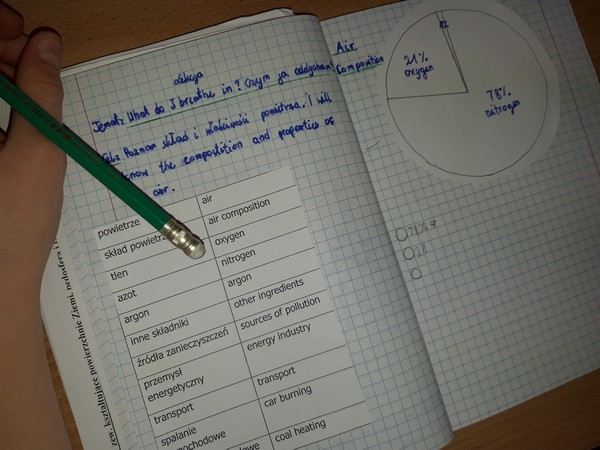 Lekcja
Temat: What do I breathe in? Czym ja oddycham?
Cel: Poznam skład i właściwości powietrza. I will
know the compostition and properties of
air.
powietrze air
skład powietrza air composition
tlen oxygen
azot nitrogen
argon argon
inne składniki other ingredients
źródła zanieczyszczeń sources of pollution
przemysł energetyczny energy industry
transport transport
spalanie car burning
coal heating
kształtujące powierzchnię Ziemi,
Air
Composition
21%
oxygen
78%
nitrogen
78%
21